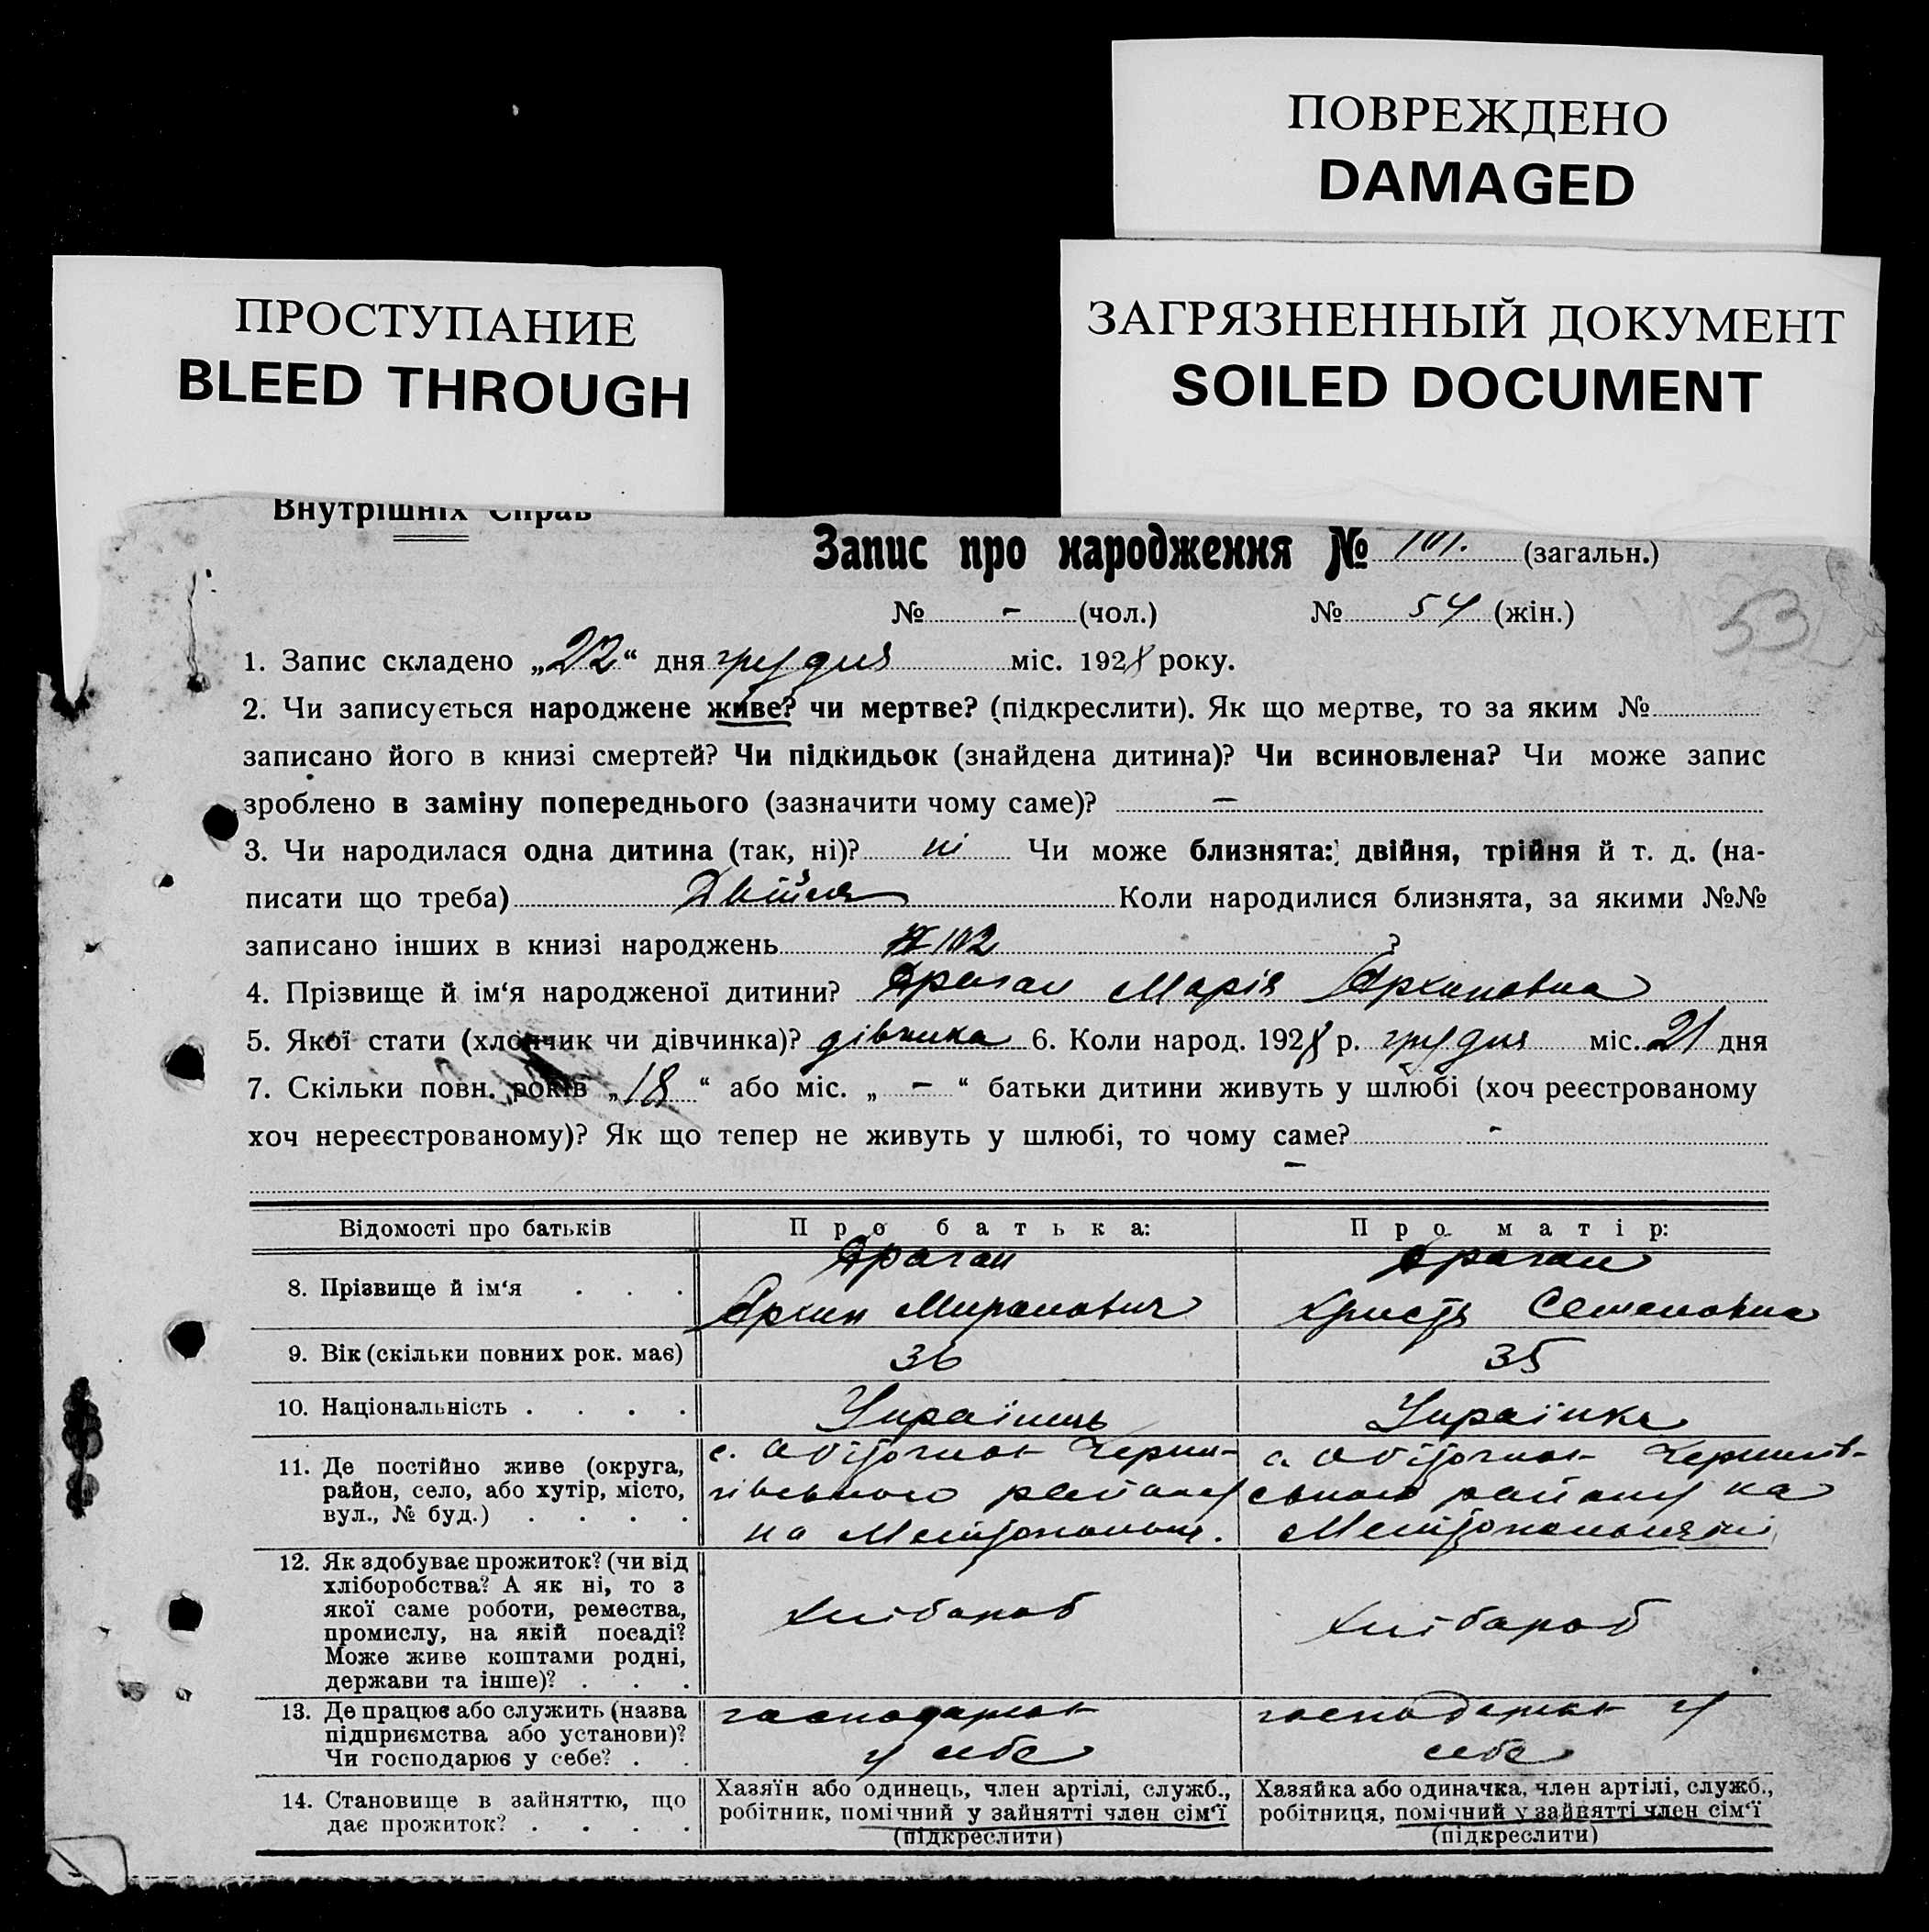 ПОВРЕЖДЕНО
DAMAGED
ПРОСТУПАНИЕ
BLEED THROUGH
ЗАГРЯЗНЕННЫЙ ДОКУМЕНТ
SOILED DOCUMENT
Внутрішніх Справ
Запис про народження № 101. (загальн.)
№ - (чол.) № 54 (жін.)
53
1. Запис складено „22“ дня грудня міс. 1928 року.
2. Чи записується народжене живе? чи мертве? (підкреслити). Як що мертве, то за яким №
записано його в книзі смертей? Чи підкидьок (знайдена дитина)? Чи всиновлена? Чи може запис
зроблено в заміну попереднього (зазначити чому саме)? —
3. Чи народилася одна дитина (так, ні)? ні Чи може близнята: двійня, трійня й т. д. (на-
писати що треба) Двійня Коли народилися близнята, за якими №№
записано інших в книзі народжень № 102 ?
4. Прізвище й ім‘я народженої дитини? Драган Марія Архиповна
5. Якої стати (хлопчик чи дівчинка)? дівчинка 6. Коли народ. 1928 р. грудня міс. 21 дня
7. Скільки повн. років „18“ або міс. „ - “ батьки дитини живуть у шлюбі (хоч реєстрованому
хоч нереєстрованому)? Як що тепер не живуть у шлюбі, то чому саме? -
—
Відомості про батьків Про батька: Про матір:
8. Прізвище й ім‘я . . . Драган Архип Миронович Драган Христя Семеновна
9. Вік (скільки повних рок. має) 36 35
10. Національність . . . . Українець Українка
11. Де постійно живе (округа,
район, село, або хутір, місто,
вул., № буд.) . . . .
с. Обіточная Черни-
гівського району
на Мелітопольщ.
с. Обіточная Чернигів-
ського району на
Мелітопольщині
12. Як здобуває прожиток? (чи від
хліборобства? А як ні, то з
якої саме роботи, ремества,
промислу, на якій посаді?
Може живе коштами родні,
держави та інше)? . . .
хлібороб
хлібороб
13. Де працює або служить (назва
підприємства або установи)?
Чи господарює у себе? . .
у себе
у
себе
14. Становище в зайняттю, що
дає прожиток? . . . .
Хазяїн або одинець, член артілі, служб.,
робітник, помічний у зайнятті член сім‘ї
(підкреслити)
Хазяйка або одиначка, член артілі, служб.,
робітниця, помічний у зайнятті член сім‘ї
(підкреслити)